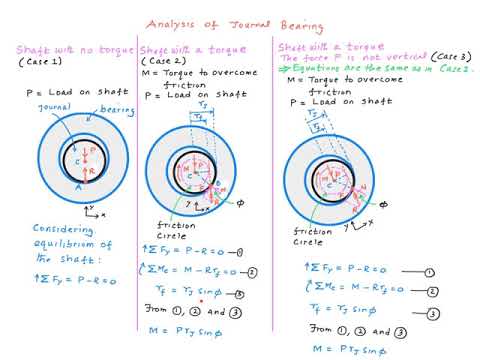 Analysis of Journal Bearing
Shaft with no torque
(Case 1)
P = Load on shaft
Journal
bearing
P
C
R
A
y
x
Considering
equilibrium of
the shaft:
↑ΣFy = P-R=0
Shaft with a torque
(Case 2)
M = Torque to overcome
friction
P = Load on shaft
rJ
rf
M
P
C
B
N
R
A
y
x
ϕ
friction
Circle
↑ΣFy = P-R=0 ①
ΣMc = M-Rrf=0 ②
rf = rJ sinϕ ③
From ①, ② and ③
M = PrJ sinϕ
Shaft with a torque
The force P is not vertical (Case 3)
⇒ Equations are the same as in Case 2.
M = Torque to overcome
friction
P = Load on shaft
rJ
M
P
C
N
R
y
x
ϕ
friction
Circle
ΣFy = P-R=0 ①
ΣMc = M-Rrf=0 ②
rf = rJ sinϕ ③
From ①, ② and ③
M = PrJ sinϕ